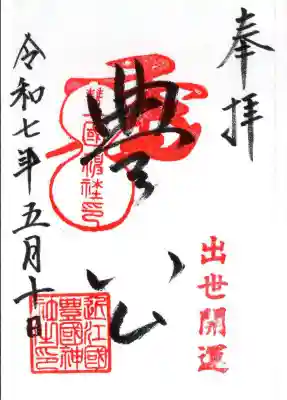 奉拝
出世開運
豊公
近江國
豊國神
社之印
令和七年五月十日